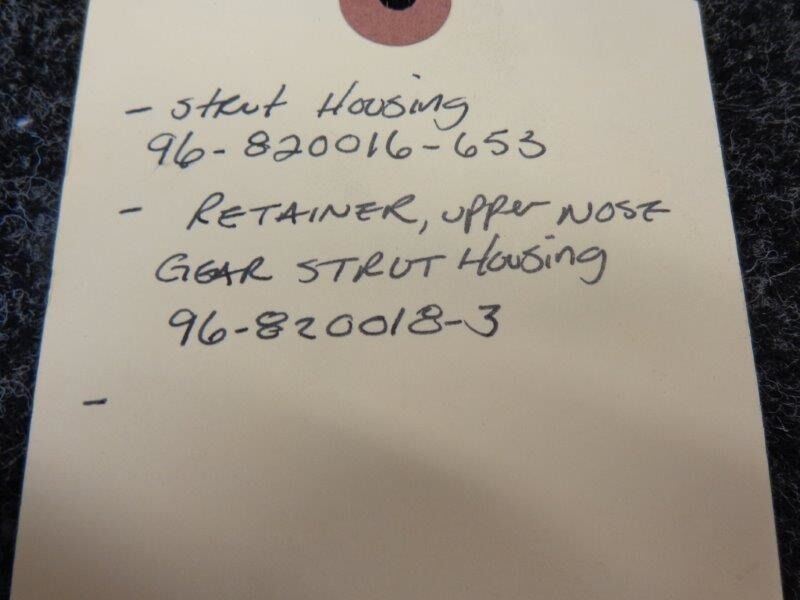 - Strut Housing
96-820016-653
- RETAINER, upper NOSE
GEAR STRUT Housing
96-820018-3
-